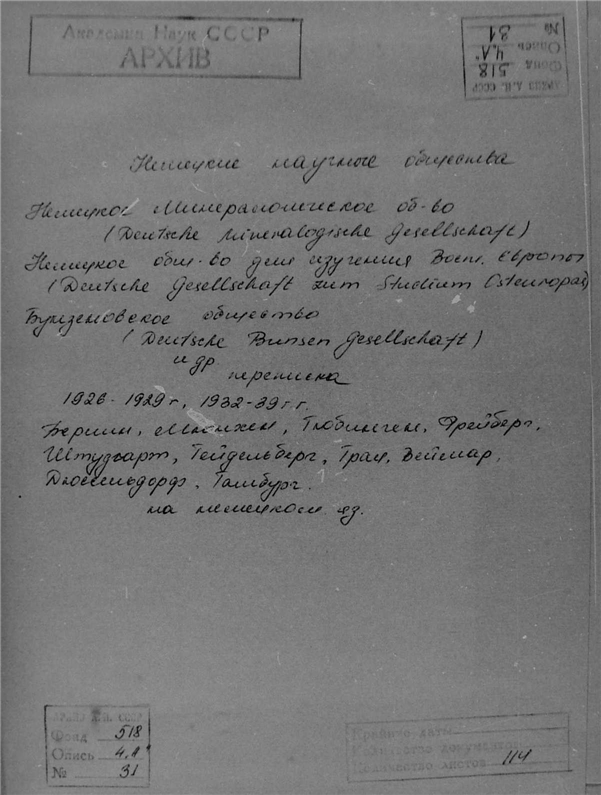 Академия Наук СССР
АРХИВ
АРХИВ А.Н. СССР
Фонд 518
Опись 4.Л"
№ 31
Немецкие научные общества
Немецкое Минералогическое об-во
(Deutsche Mineralogische Gesellschaft)
Немецкое общ-во для изучения Вост. Европы
(Deutsche Gesellschaft zum Studium Osteuropas)
Бунзеновское общество
(Deutsche Bunsen Gesellschaft)
и др.
переписка
1926-1929 г, 1932-39 г.г.
Берлин, Мюнхен, Тюбинген, Фрейберг,
Штудгарт, Гейдельберг, Грац, Веймар,
Дюссельдорф, Гамбург.
на немецком яз.
АРХИВ А.Н. СССР
Фонд 518
Опись 4.Л"
№ 31
Крайние даты
Количество документов
Количество листов 114